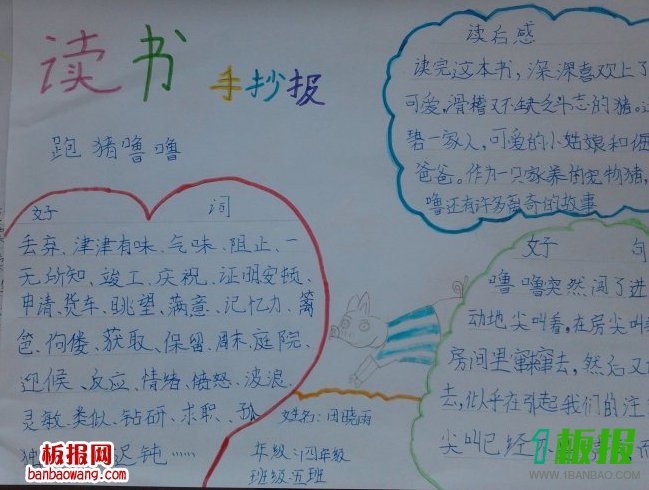 读书
手抄报
跑猪噜噜
好 词
丢弃、津津有味、气味、阻止、一
无所知、竣工、庆祝、证明安顿、
申请、货车、眺望、满意、记忆力、篱
笆、佝偻、获取、保留、庭院、
迎候、反应、情绪、愤怒、波浪、
灵敏、类似、钻研、求职、孤
独 迟钝……
读后感
读完这本书,深深喜欢上了
可爱,滑稽又不缺乏斗志的猪。
碧一家人,可爱的小姑娘和倔
爸爸。作为一只家养的宠物猪,
噜还有许多离奇的故事
好 句
噜噜突然闯了进
动地尖叫着,在房尖叫
房间里窜去,然后又
去,似乎在引起我们的注
尖叫已经
姓名:田晓雨
年级:四年级
班级:五班
板报网
banbaowang.com
1板报
WWW.1BANBAO.COM